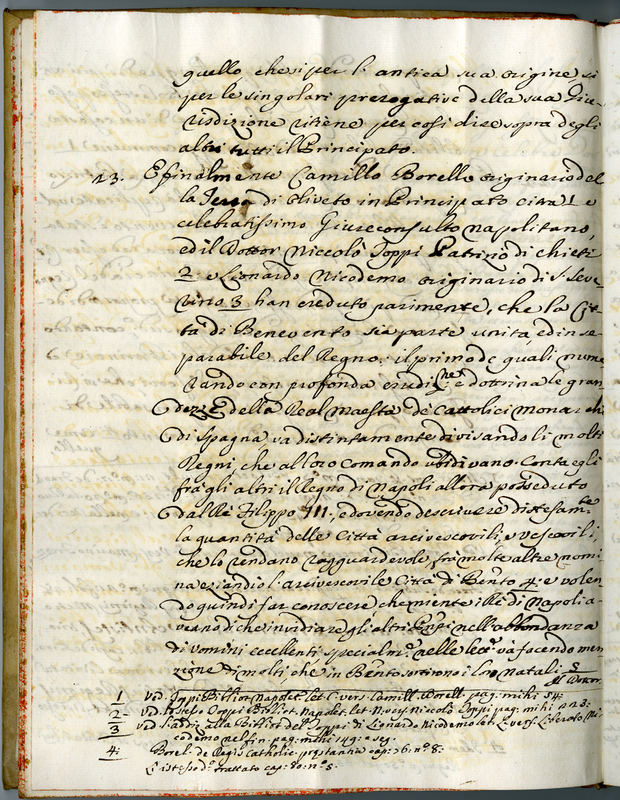 quello, che sì per l'antica sua origine, sì
per le singolari prerogative della sua Giu-
risdizione ritiene per così dire sopra degli
altri tutti il Principato.
23. E finalmente Camillo Borello originario del
la Terra di Oliveto in Principato citra 1 e
celebratissimo Giureconsulto napolitano,
ed il Dottor Niccolò Toppi Patrizio di Chieti
2 e Lionardo Nicodemo originario di S. Seve
rino 3 han creduto parimente, che la Cit
tà di Benevento sia parte unita, ed inse
parabile del Regno: il primo de quali nume
rando con profonda erudi.ne e dottrina le gran
dezze della Real Maestà de Cattolici Monarchi
di Spagna va distintamente divisando li molti
Regni, che al loro comando ubidivano. Conta egli
frà gli altri il Regno di Napoli allora posseduto
dal Rè Filippo III., e dovendo descrivere distesam.te
la quantità delle Città arcivescovili, e vescovili,
che lo rendano ragguardevole, frà molte altre nomi
na eziandio l'arcivescovile Città di Ben.to 4: e volen
do quindi far conoscere, che niente i Rè di Napoli a-
veano di che invidiare gli altri nell'abbondanza
di uomini eccellenti specialm.e nelle lett.e và facendo men
zione di molti, che in Ben.to sortirono i loro natali: 5
Il Dottor
1 Vid. Toppi Bibliot. Napolet. let. C. vers. Camill. Borell. pag. mihi 54:
2 vid. Toppi Bibliot. Napolet. let. N. vers. Niccolò Toppi pag. mihi 223:
3 vid. l'addiz. alla Bibliot. del Toppi di Lionardo Nicodemo let. L. vers. Liberato Ni
codemo nel fin. pag. mihi 149: e seg.
4: Borel. de Regis Catholic. praestantia cap: 76: n.o 8:
L'istesso d.o trattato cap: 80: n.o 5: